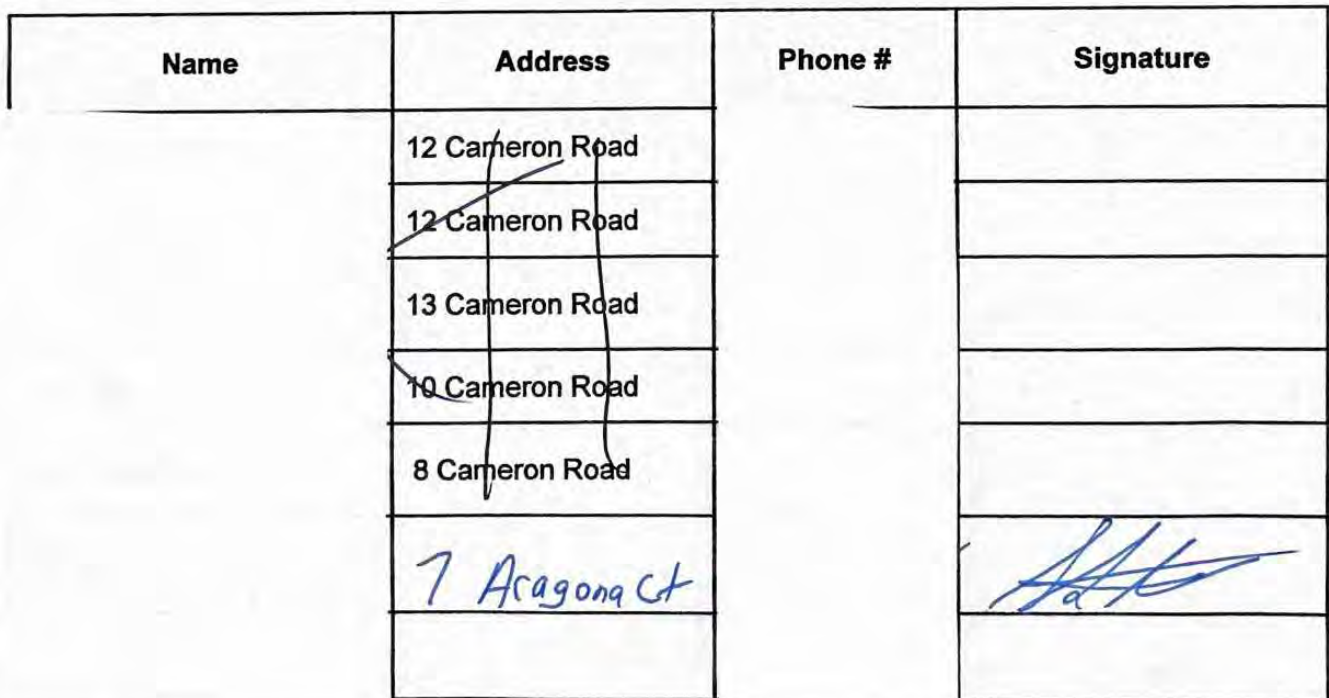 Name Address Phone # Signature
12 Cameron Road
12 Cameron Road
13 Cameron Road
10 Cameron Road
8 Cameron Road
7 Aragona Ct